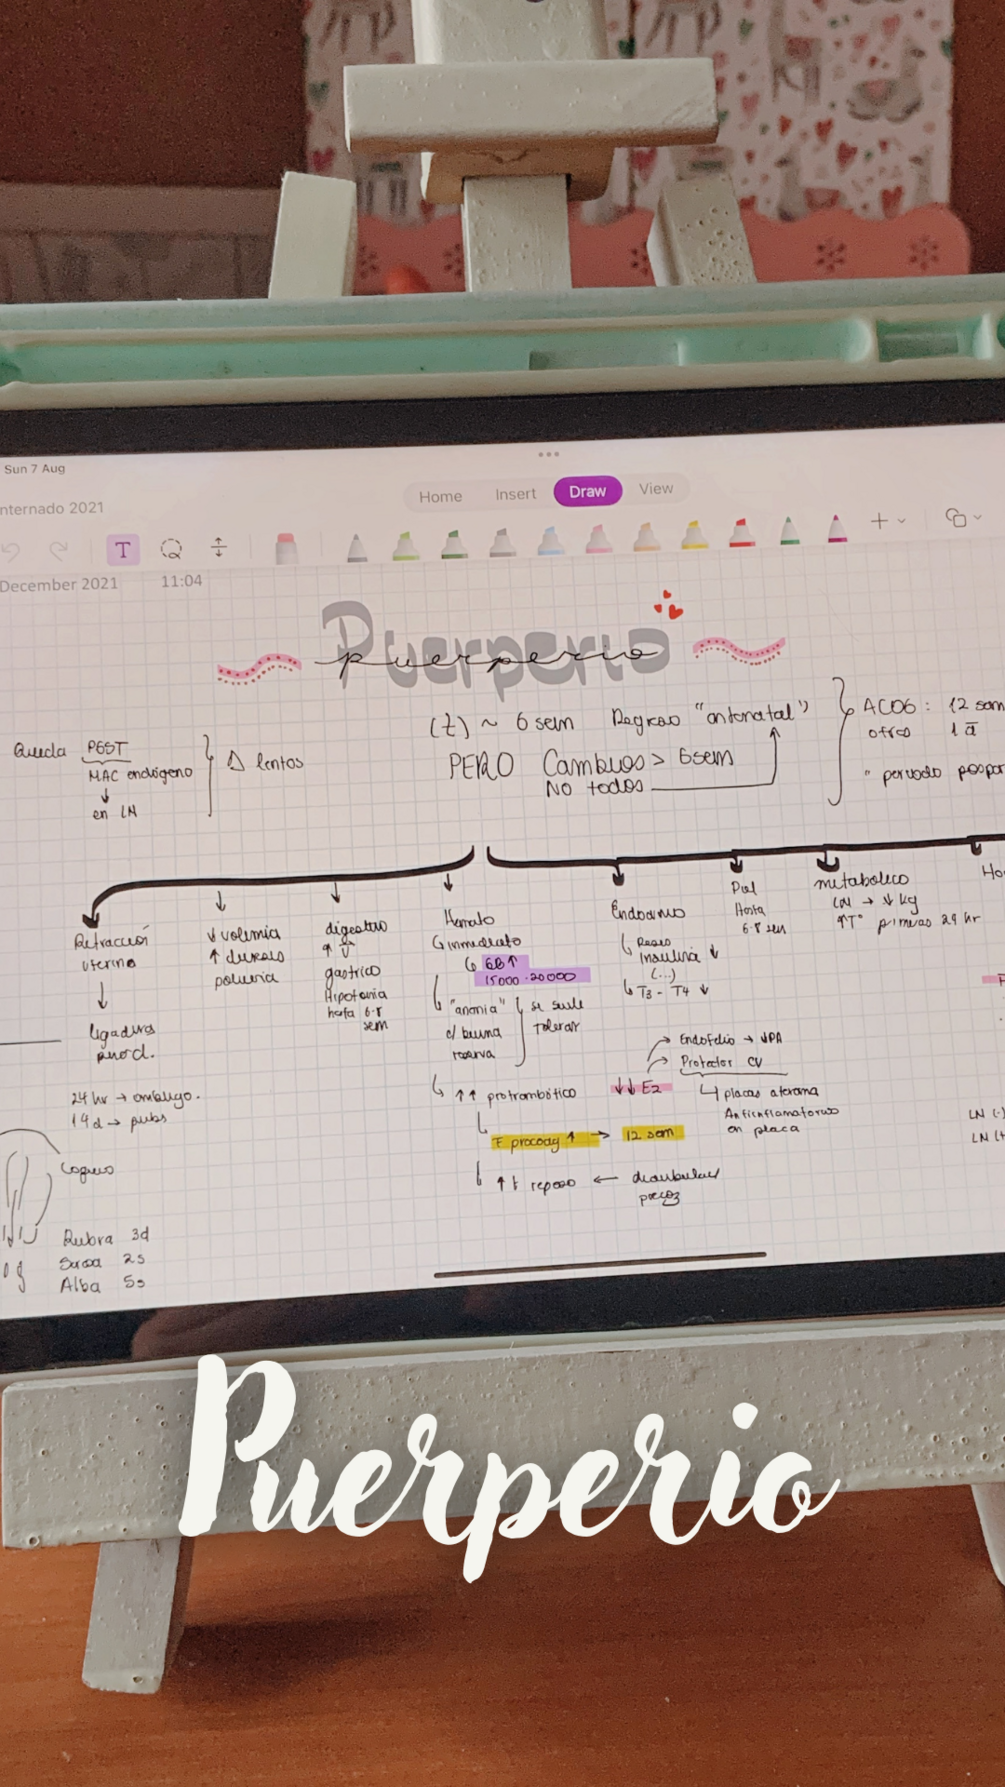 Sun 7 Aug
nternado 2021
Home Insert Draw View
T
December 2021 11:04
Puerperio
puerperio
(t) ~ 6 sem Regreso "antenatal"
PERO Cambios > 6 sem
No todos
ACOG : 12 sem
otros 1 a
" periodo pospar
Queda PGST
MAC endógeno
↓
en LN
Δ lentos
Retracción
uterina
↓
ligadura
prod.
24 hr → ombligo.
14 d → pubis
Loquios
Rubra 3d
Serosa 2s
Alba 5s
↓ volemia
↑ diuresis
poliuria
digestivo
↑
gástrico
Hipotonia
hasta 6-8
sem
Hemato
inmediato
GB ↑
15000-20000
"anemia"
c/ buena
reserva
se suele
tolerar
↑↑ protrombótico
F procoag ↑ → 12 sem
↑ t reposo ← deambular
precoz
Endocrino
Insulina ↓
(...)
T3 - T4 ↓
↓↓ E2
Endotelio → ↓PA
Protector CV
placas ateroma
Antiinflamatorio
en placa
Piel
Hasta
6-8 sem
metabólico
LM → ↓ kg
↑T° primeras 24 hr
Ho
LN (-)
LN (+
Puerperio